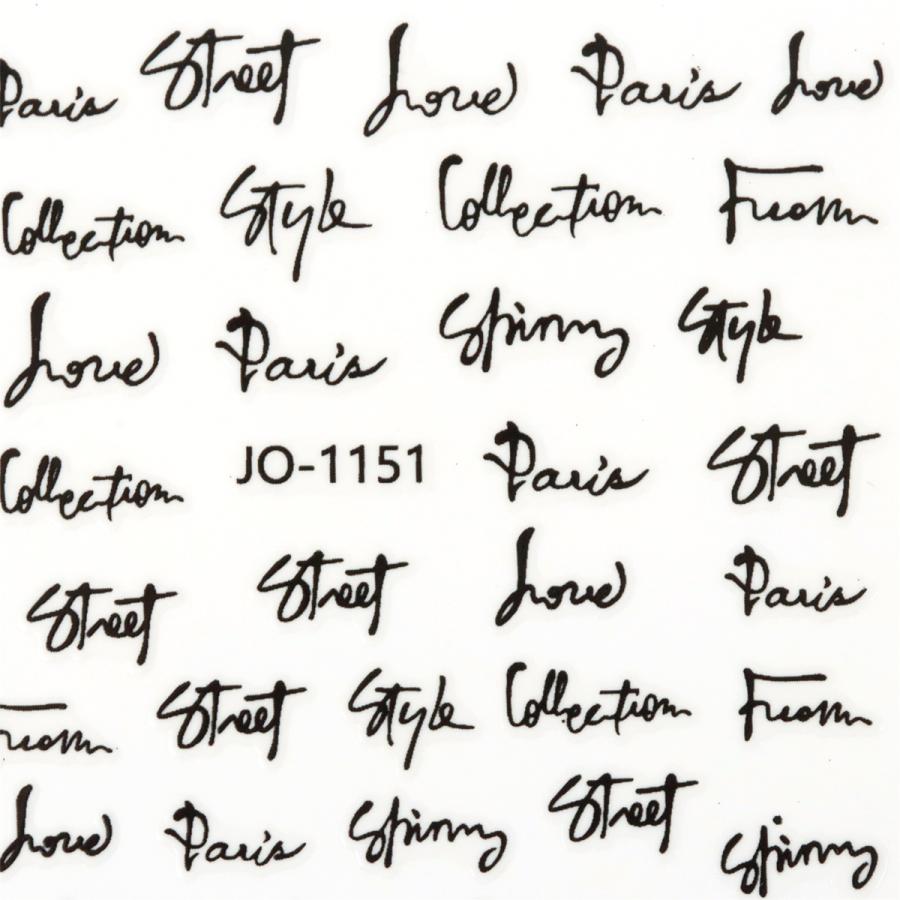 Paris Street Love Paris Love
Collection Style Collection From
Love Paris Style
Collection JO-1151 Paris Street
Street Street Love Paris
Street Style Collection From
Love Paris Street